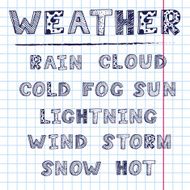 WEATHER
RAIN CLOUD
COLD FOG SUN
LIGHTNING
WIND STORM
SNOW HOT